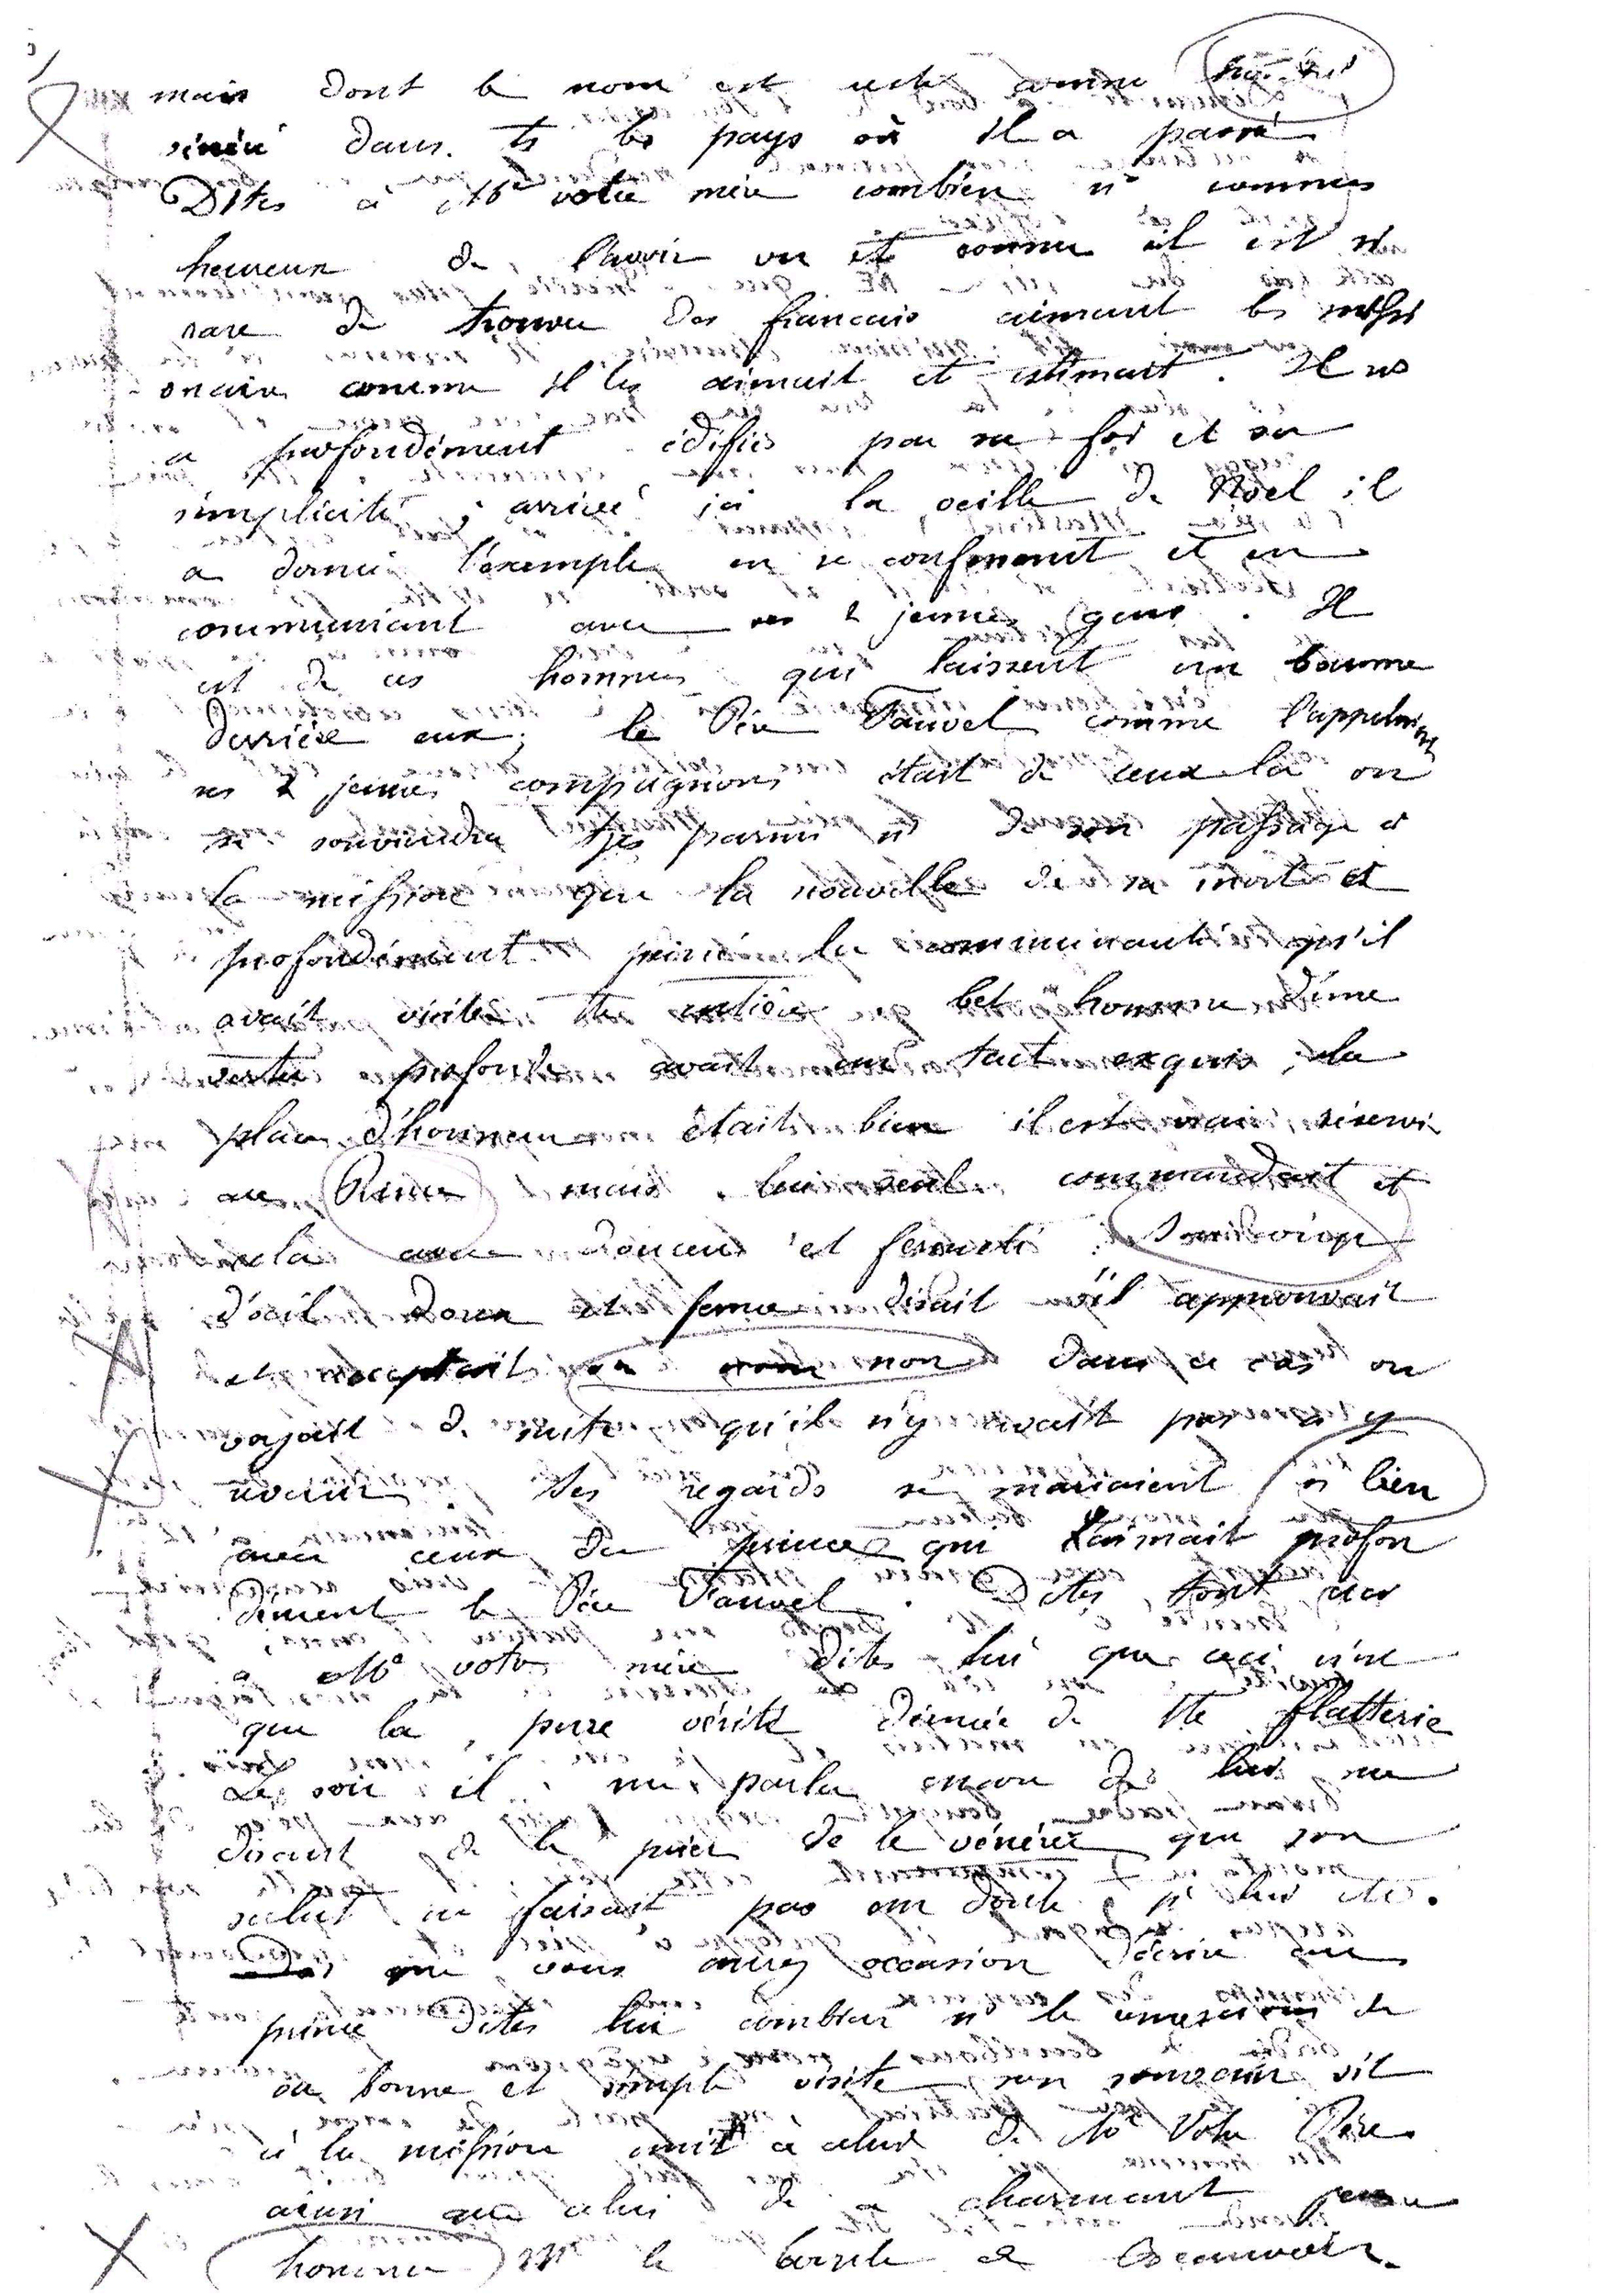 mais dont le nom est resté comme
dans ts les pays où il a passé
Dites à Me votre mère combien ns sommes
heureux de l'avoir vu et connu il est si
rare de trouver des francais aimant les missi
onaires comme il les aimait et estimait. Il ns
a profondément édifiés par sa foi et sa
simplicité; arrivé ici la veille de Noel il
a donné l'exemple en se confessant et en
communiant avec ses 2 jeunes gens. Il
est de ces hommes qui laissent un baume
derrière eux; le Père Fauvel comme l'appelaient
ses 2 jeunes compagnons était de ceux là on
se souviendra tjrs parmi ns de son passage à
la mission que la nouvelle de sa mort et
profondément peiné la communauté qu'il
avait visitée tte entière bel homme d'une
vertu profonde avait un tact exquis, la
place d'honneur était bien il est vrai réservée
au Prince mais lui seul commandait et
cela avec douceur et fermeté
d'œil doux et ferme disait s'il approuvait
et acceptait ou non dans ce cas on
voyait d. suite qu'il n'y avait pas à y
revenir. Ses regards se mariaient si bien
avec ceux du prince qui l'aimait profon
dément le Père Fauvel. Dites tout cela
à Me votre mère dites lui que ceci n'est
que la pure vérité dénuée de tte flatterie
Le soir il me parla encore de lui me
disant de le prier de le vénérer que son
salut ne faisait pas un doute pr lui etc.
si vous aurez occasion d'écrire au
prince dites lui combien ns le remercions de
sa bonne et simple visite son souvenir vit
à la mission unit à celui de Mr Votre Père
ainsi que celui de ce charmant jeune
homme Mr le comte de Beauvoir.